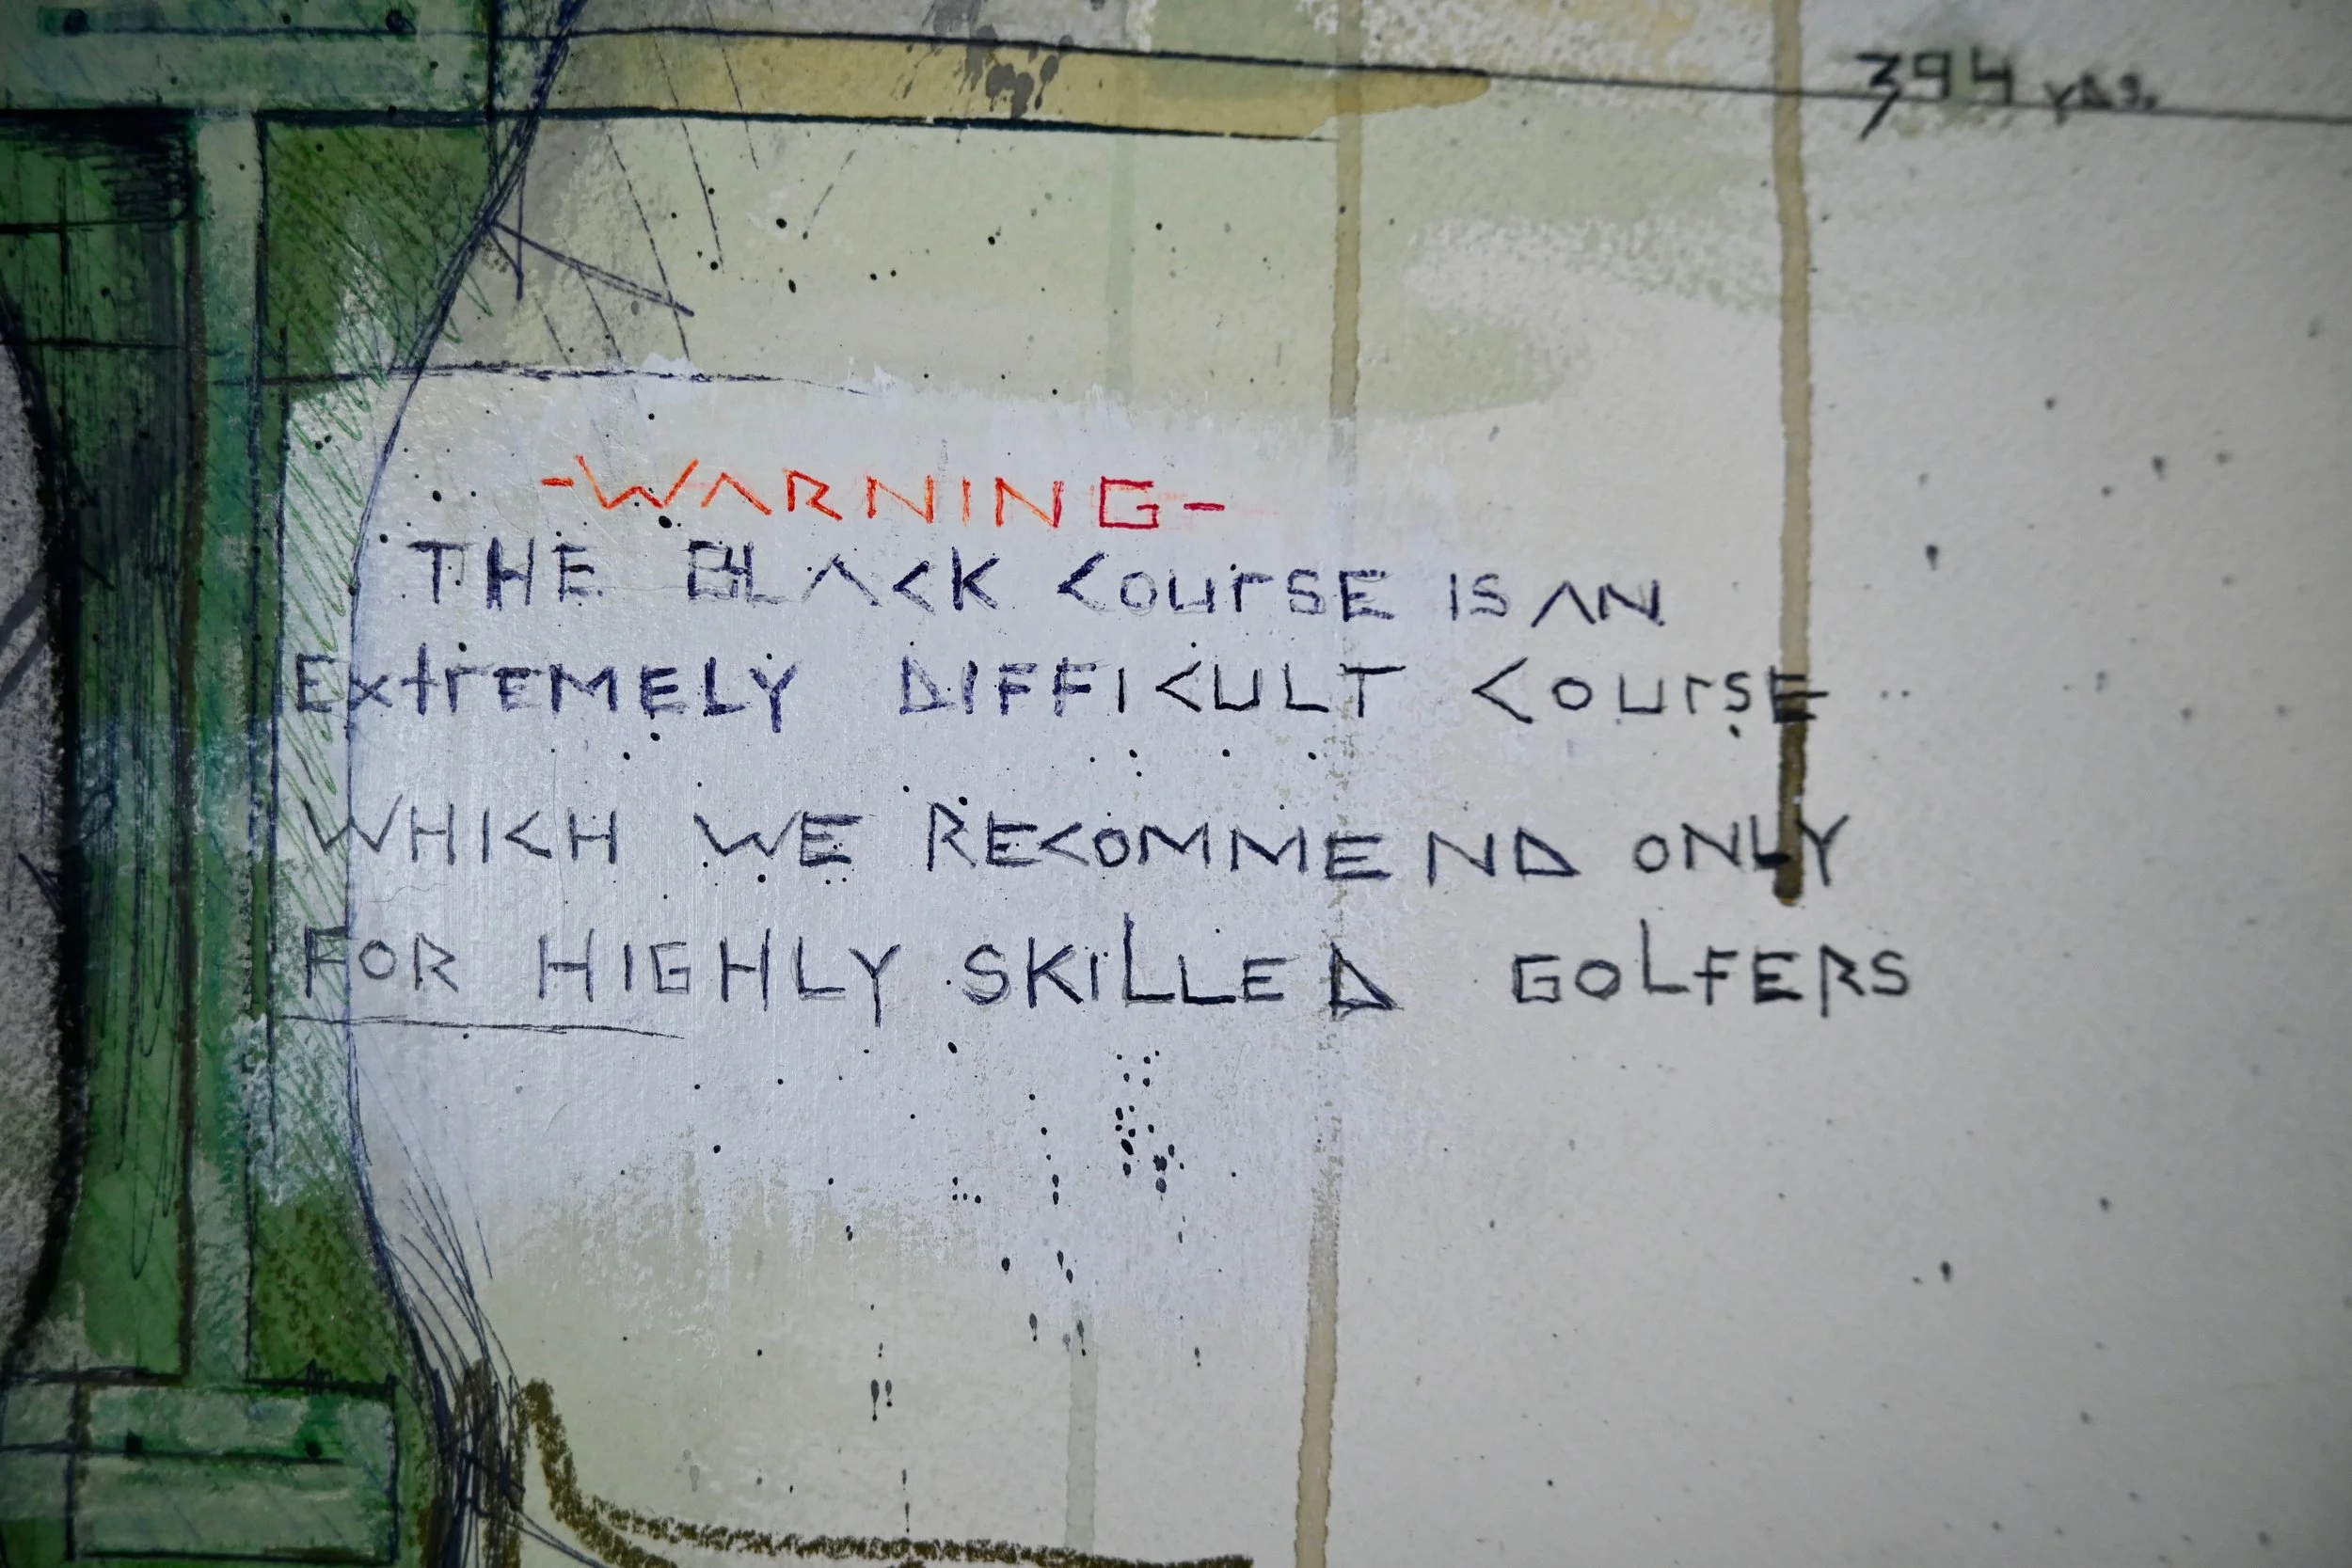 394 YDS.
-WARNING-
THE BLACK COURSE IS AN
EXTREMELY DIFFICULT COURSE
WHICH WE RECOMMEND ONLY
FOR HIGHLY SKILLED GOLFERS